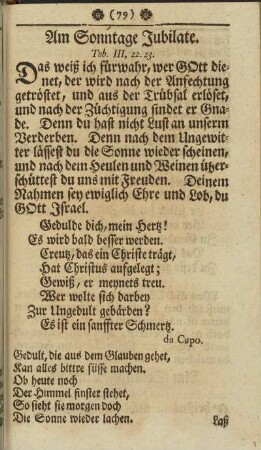 (79)
Am Sonntage Jubilate.
Tob. III, 22. 23.
Das weiß ich fürwahr, wer GOtt die-
net, der wird nach der Anfechtung
getröstet, und aus der Trübsal erlöset,
und nach der Züchtigung findet er Gna-
de. Denn du hast nicht Lust an unserm
Verderben. Denn nach dem Ungewit-
ter lässest du die Sonne wieder scheinen,
und nach dem Heulen und Weinen über-
schüttest du uns mit Freuden. Deinem
Nahmen sey ewiglich Ehre und Lob, du
GOtt Israel.
Gedulde dich, mein Hertz!
Es wird bald besser werden.
Creutz, das ein Christe trägt,
Hat Christus aufgelegt;
Gewiß, er meynets treu.
Wer wolte sich darbey
Zur Ungedult gebärden?
Es ist ein sanffter Schmertz.
da Capo.
Gedult, die aus dem Glauben gehet,
Kan alles bittre süsse machen.
Ob heute noch
Der Himmel finster stehet,
So sieht sie morgen doch
Die Sonne wieder lachen.
Laß